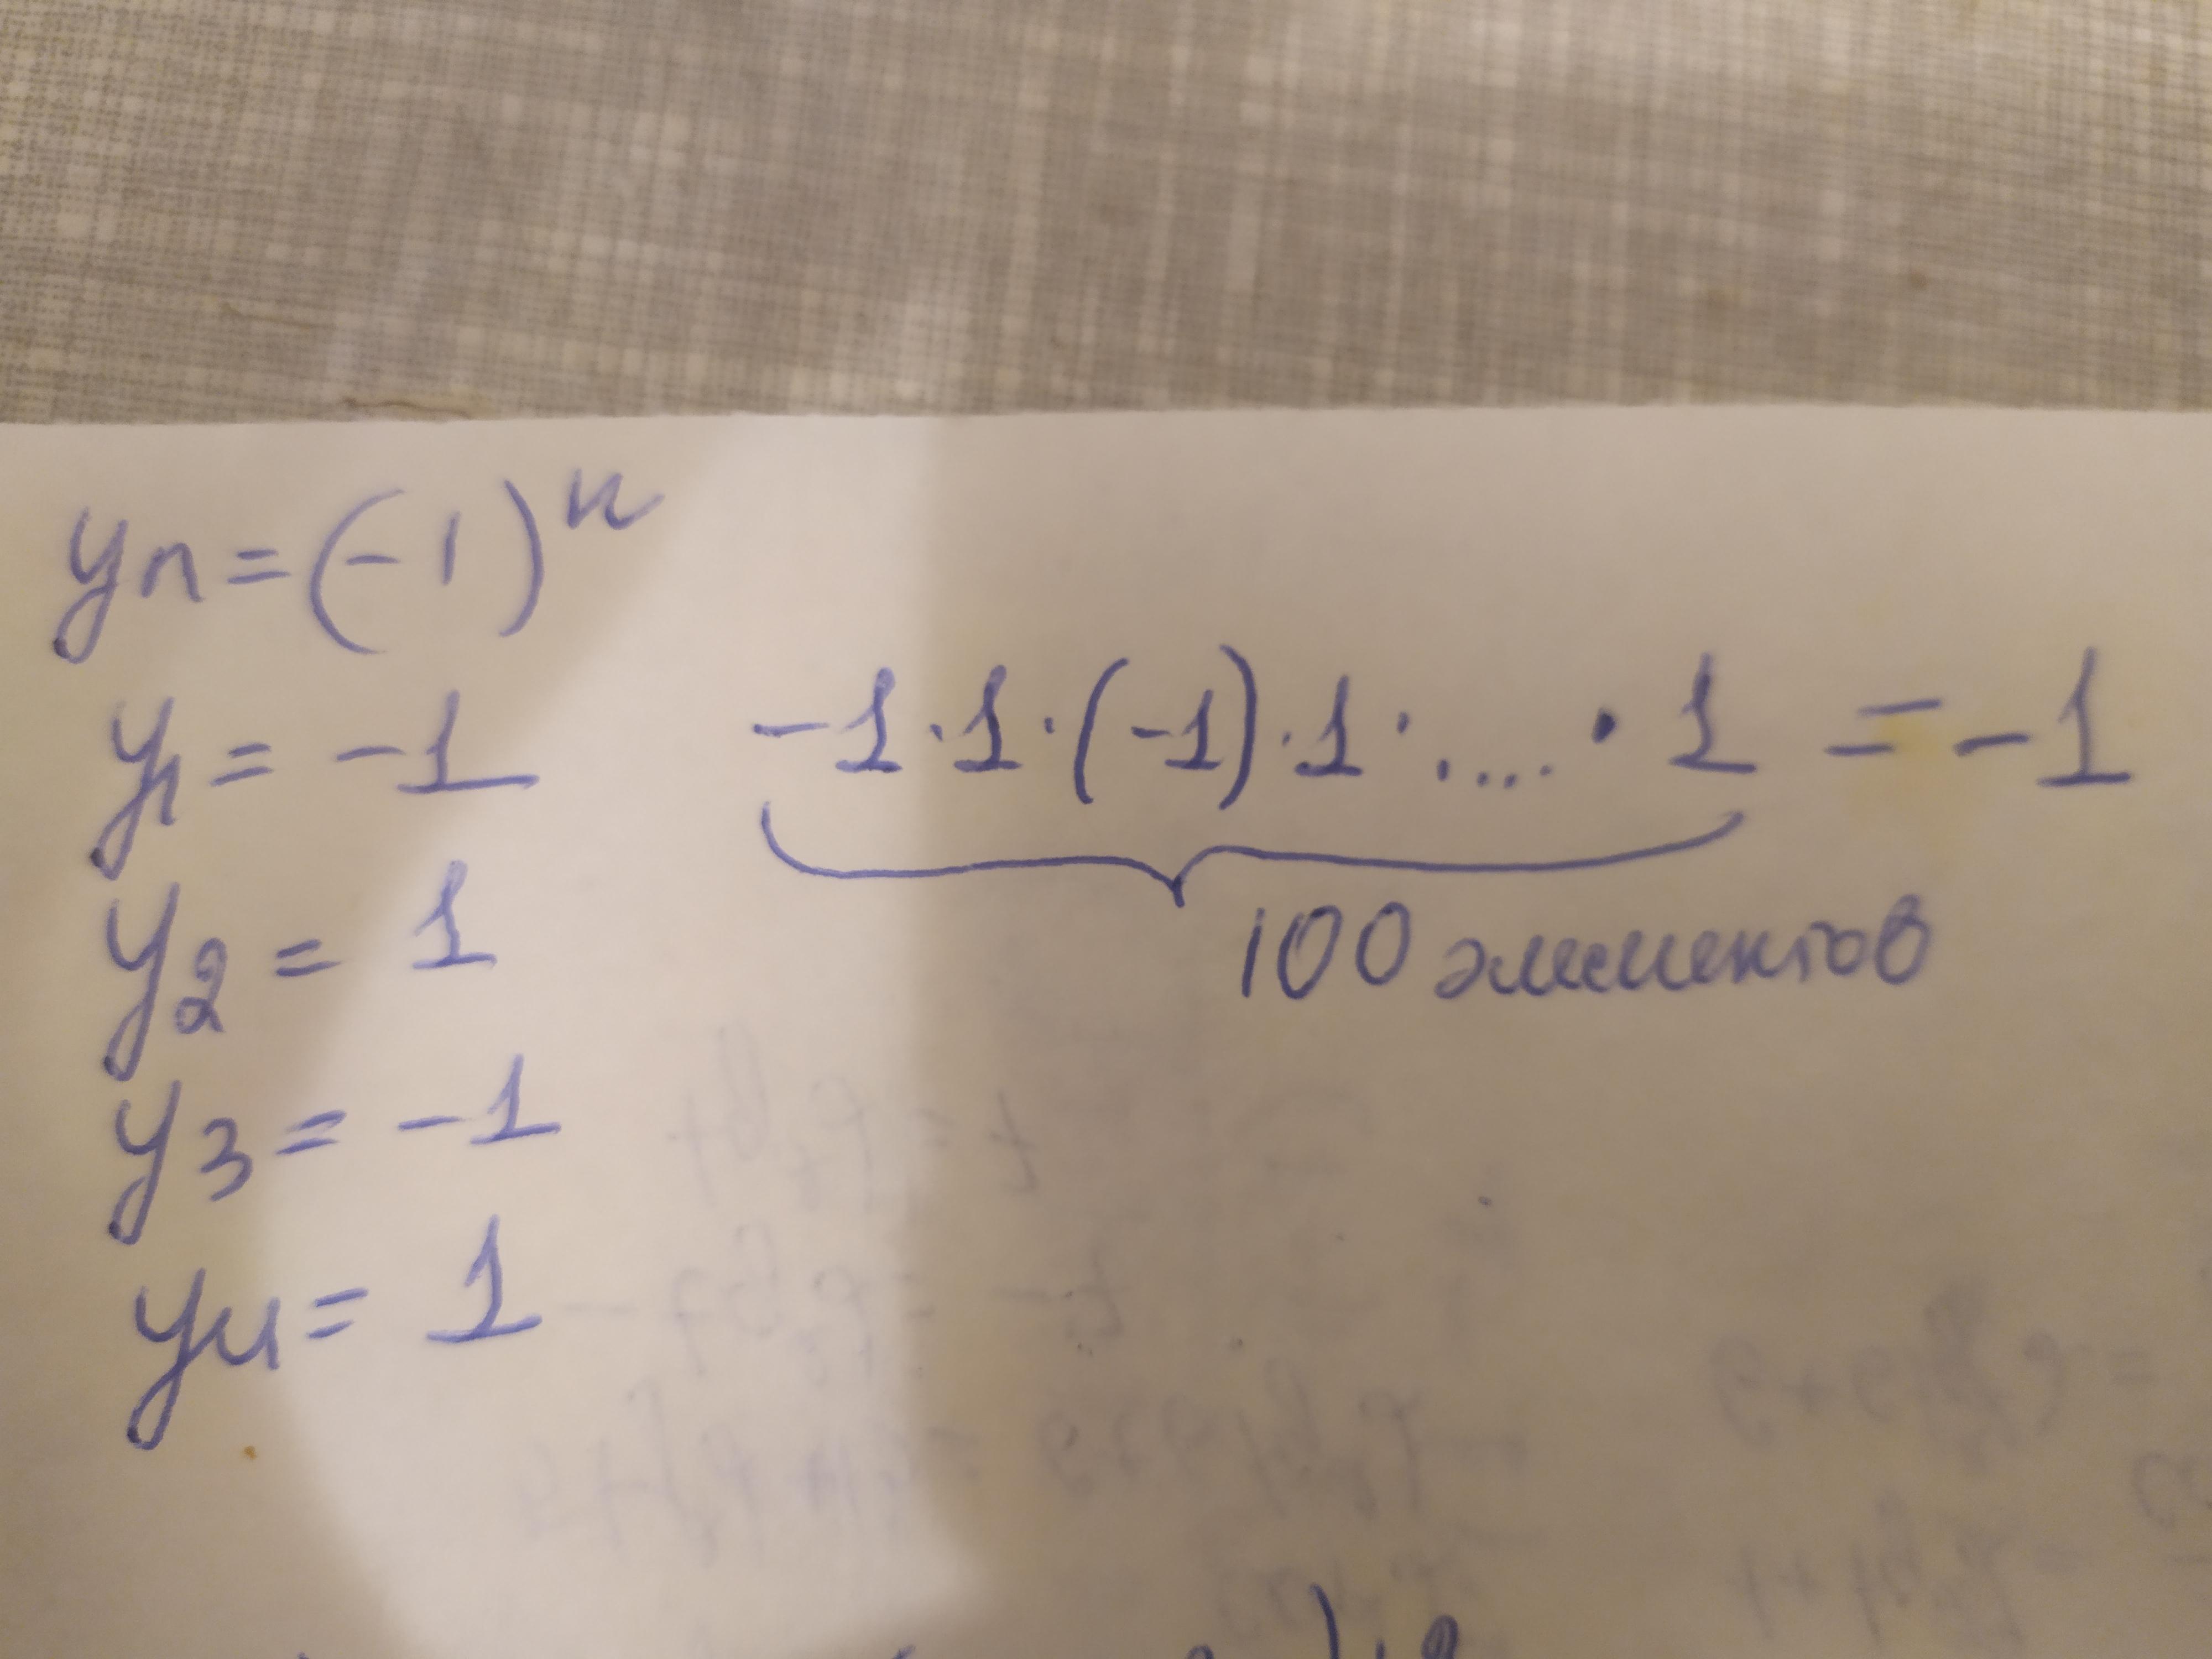 yn = (-1)^n
y1 = -1
-1 · 1 · (-1) · 1 · .... · 1 = -1
100 элементов
y2 = 1
y3 = -1
y4 = 1